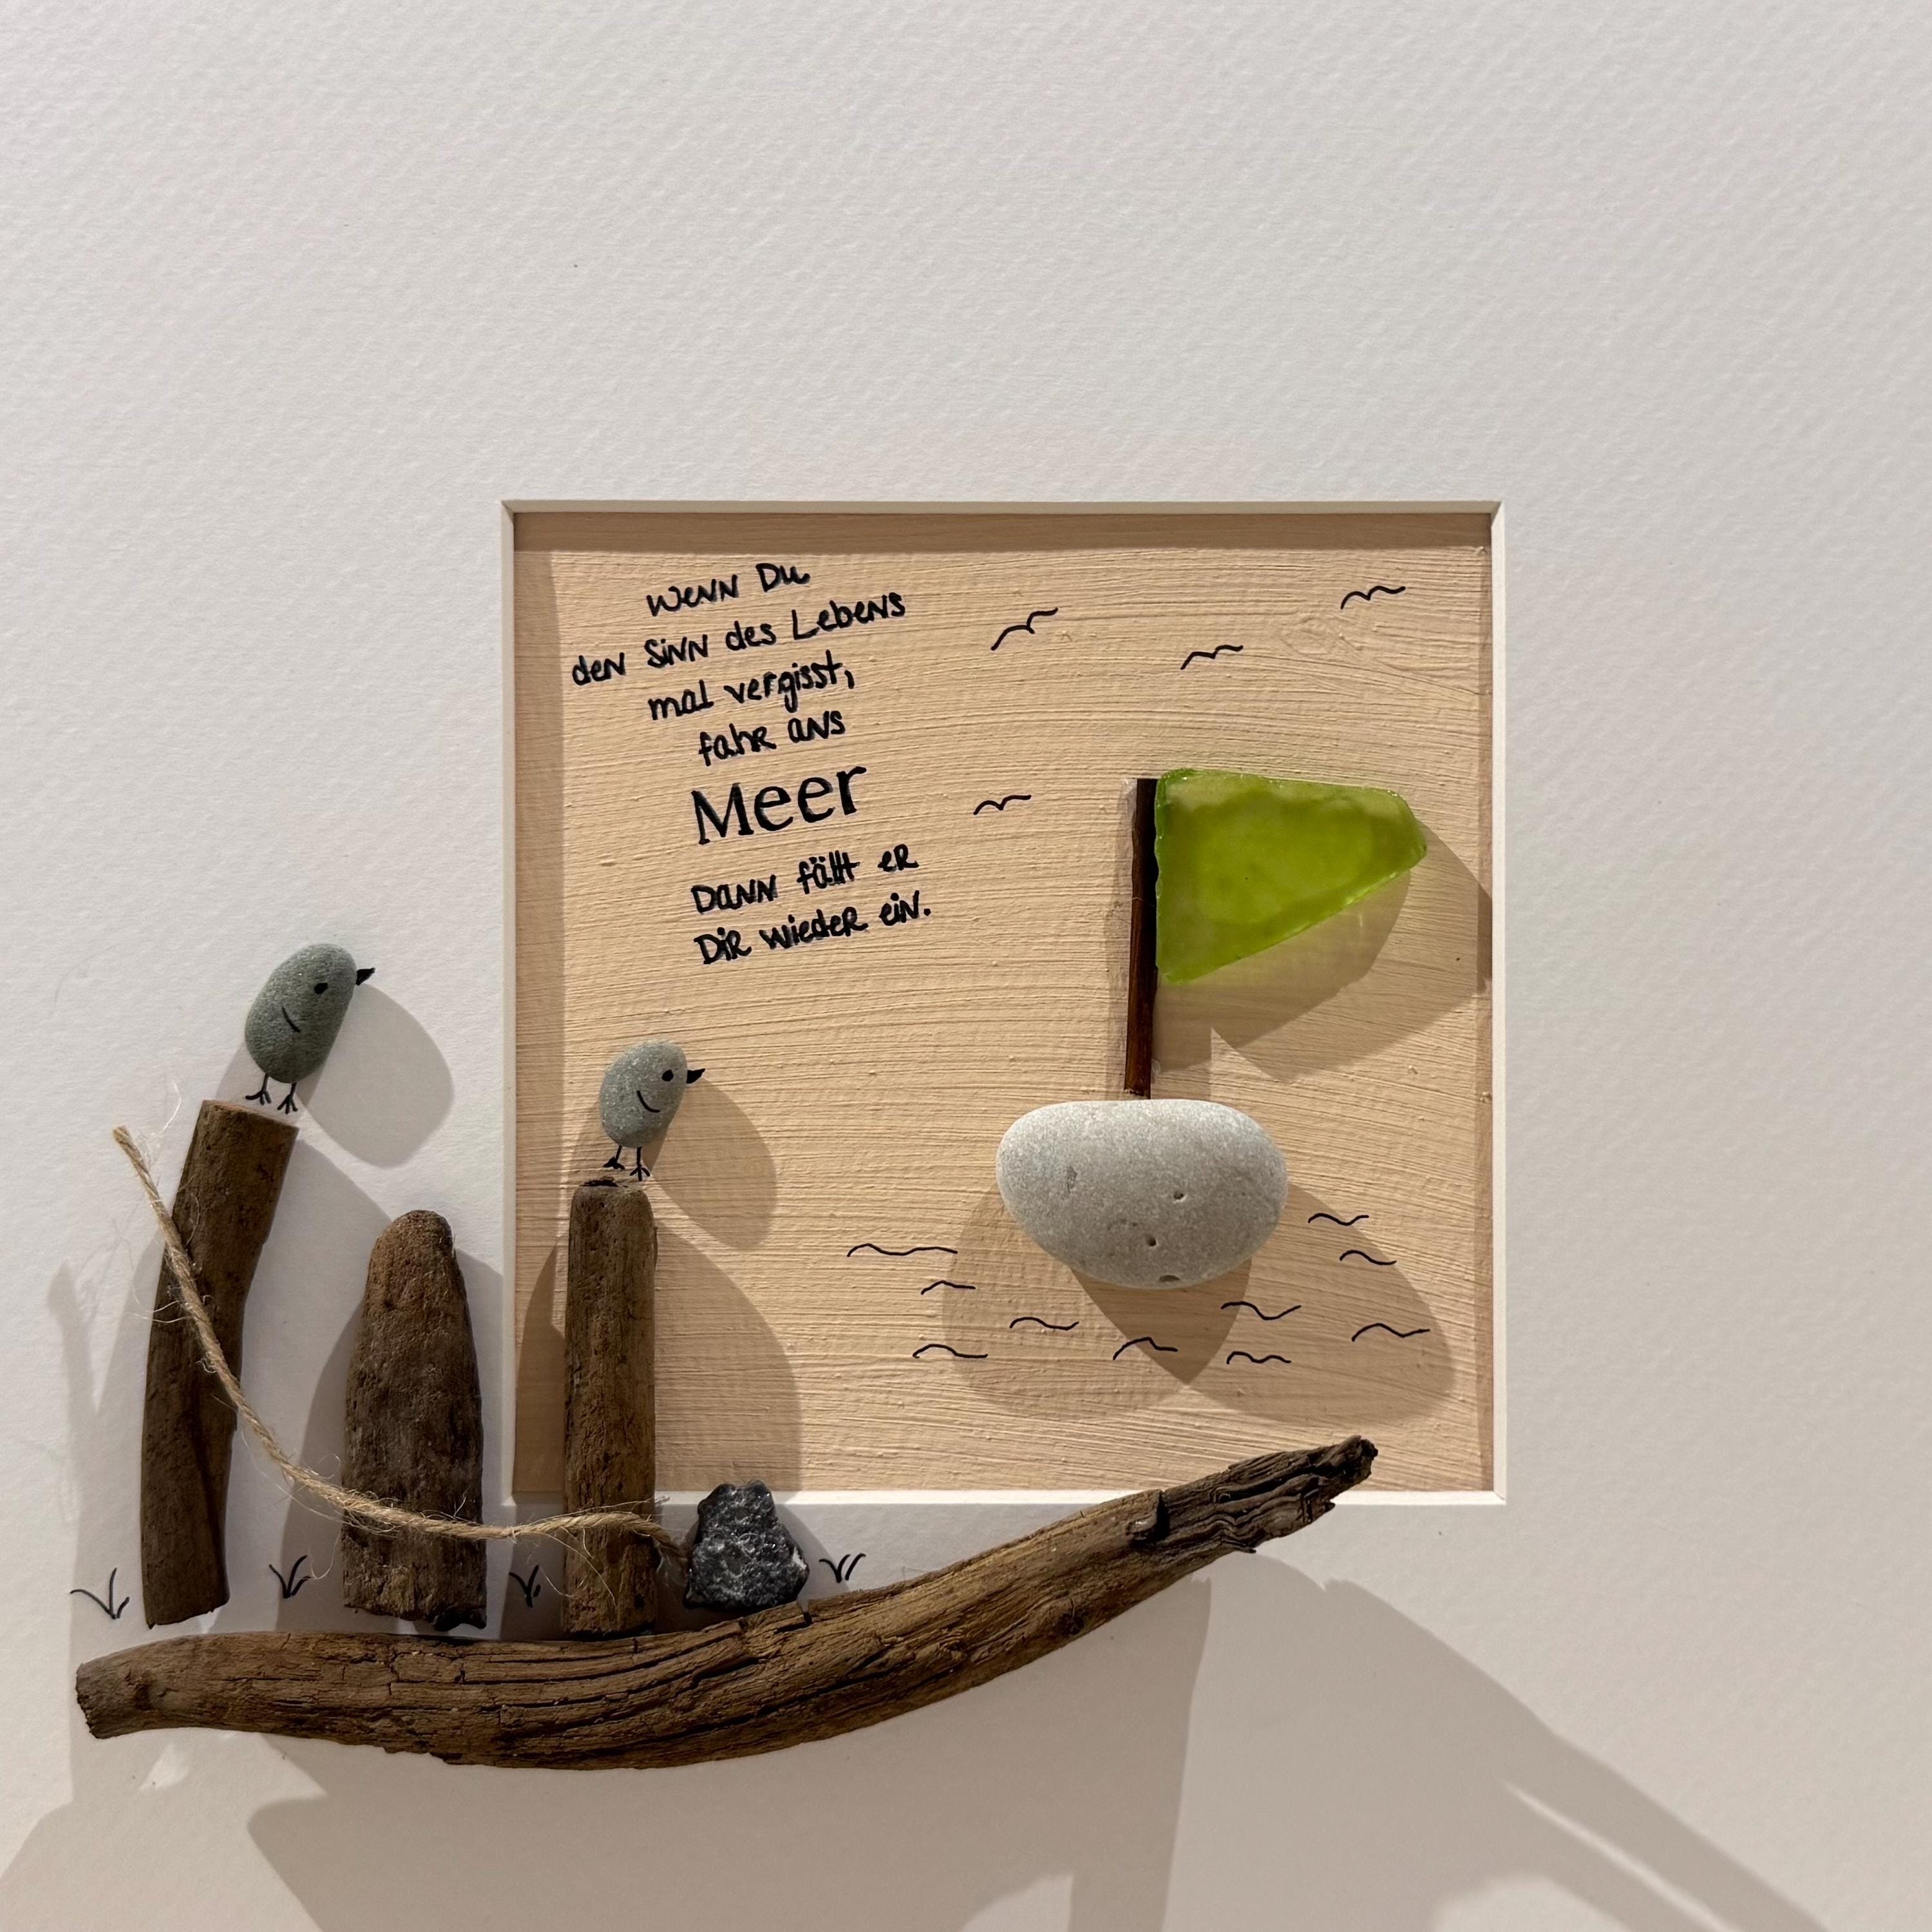 Wenn Du
den Sinn des Lebens
mal vergisst,
fahr ans
Meer
Dann fällt er
Dir wieder ein.